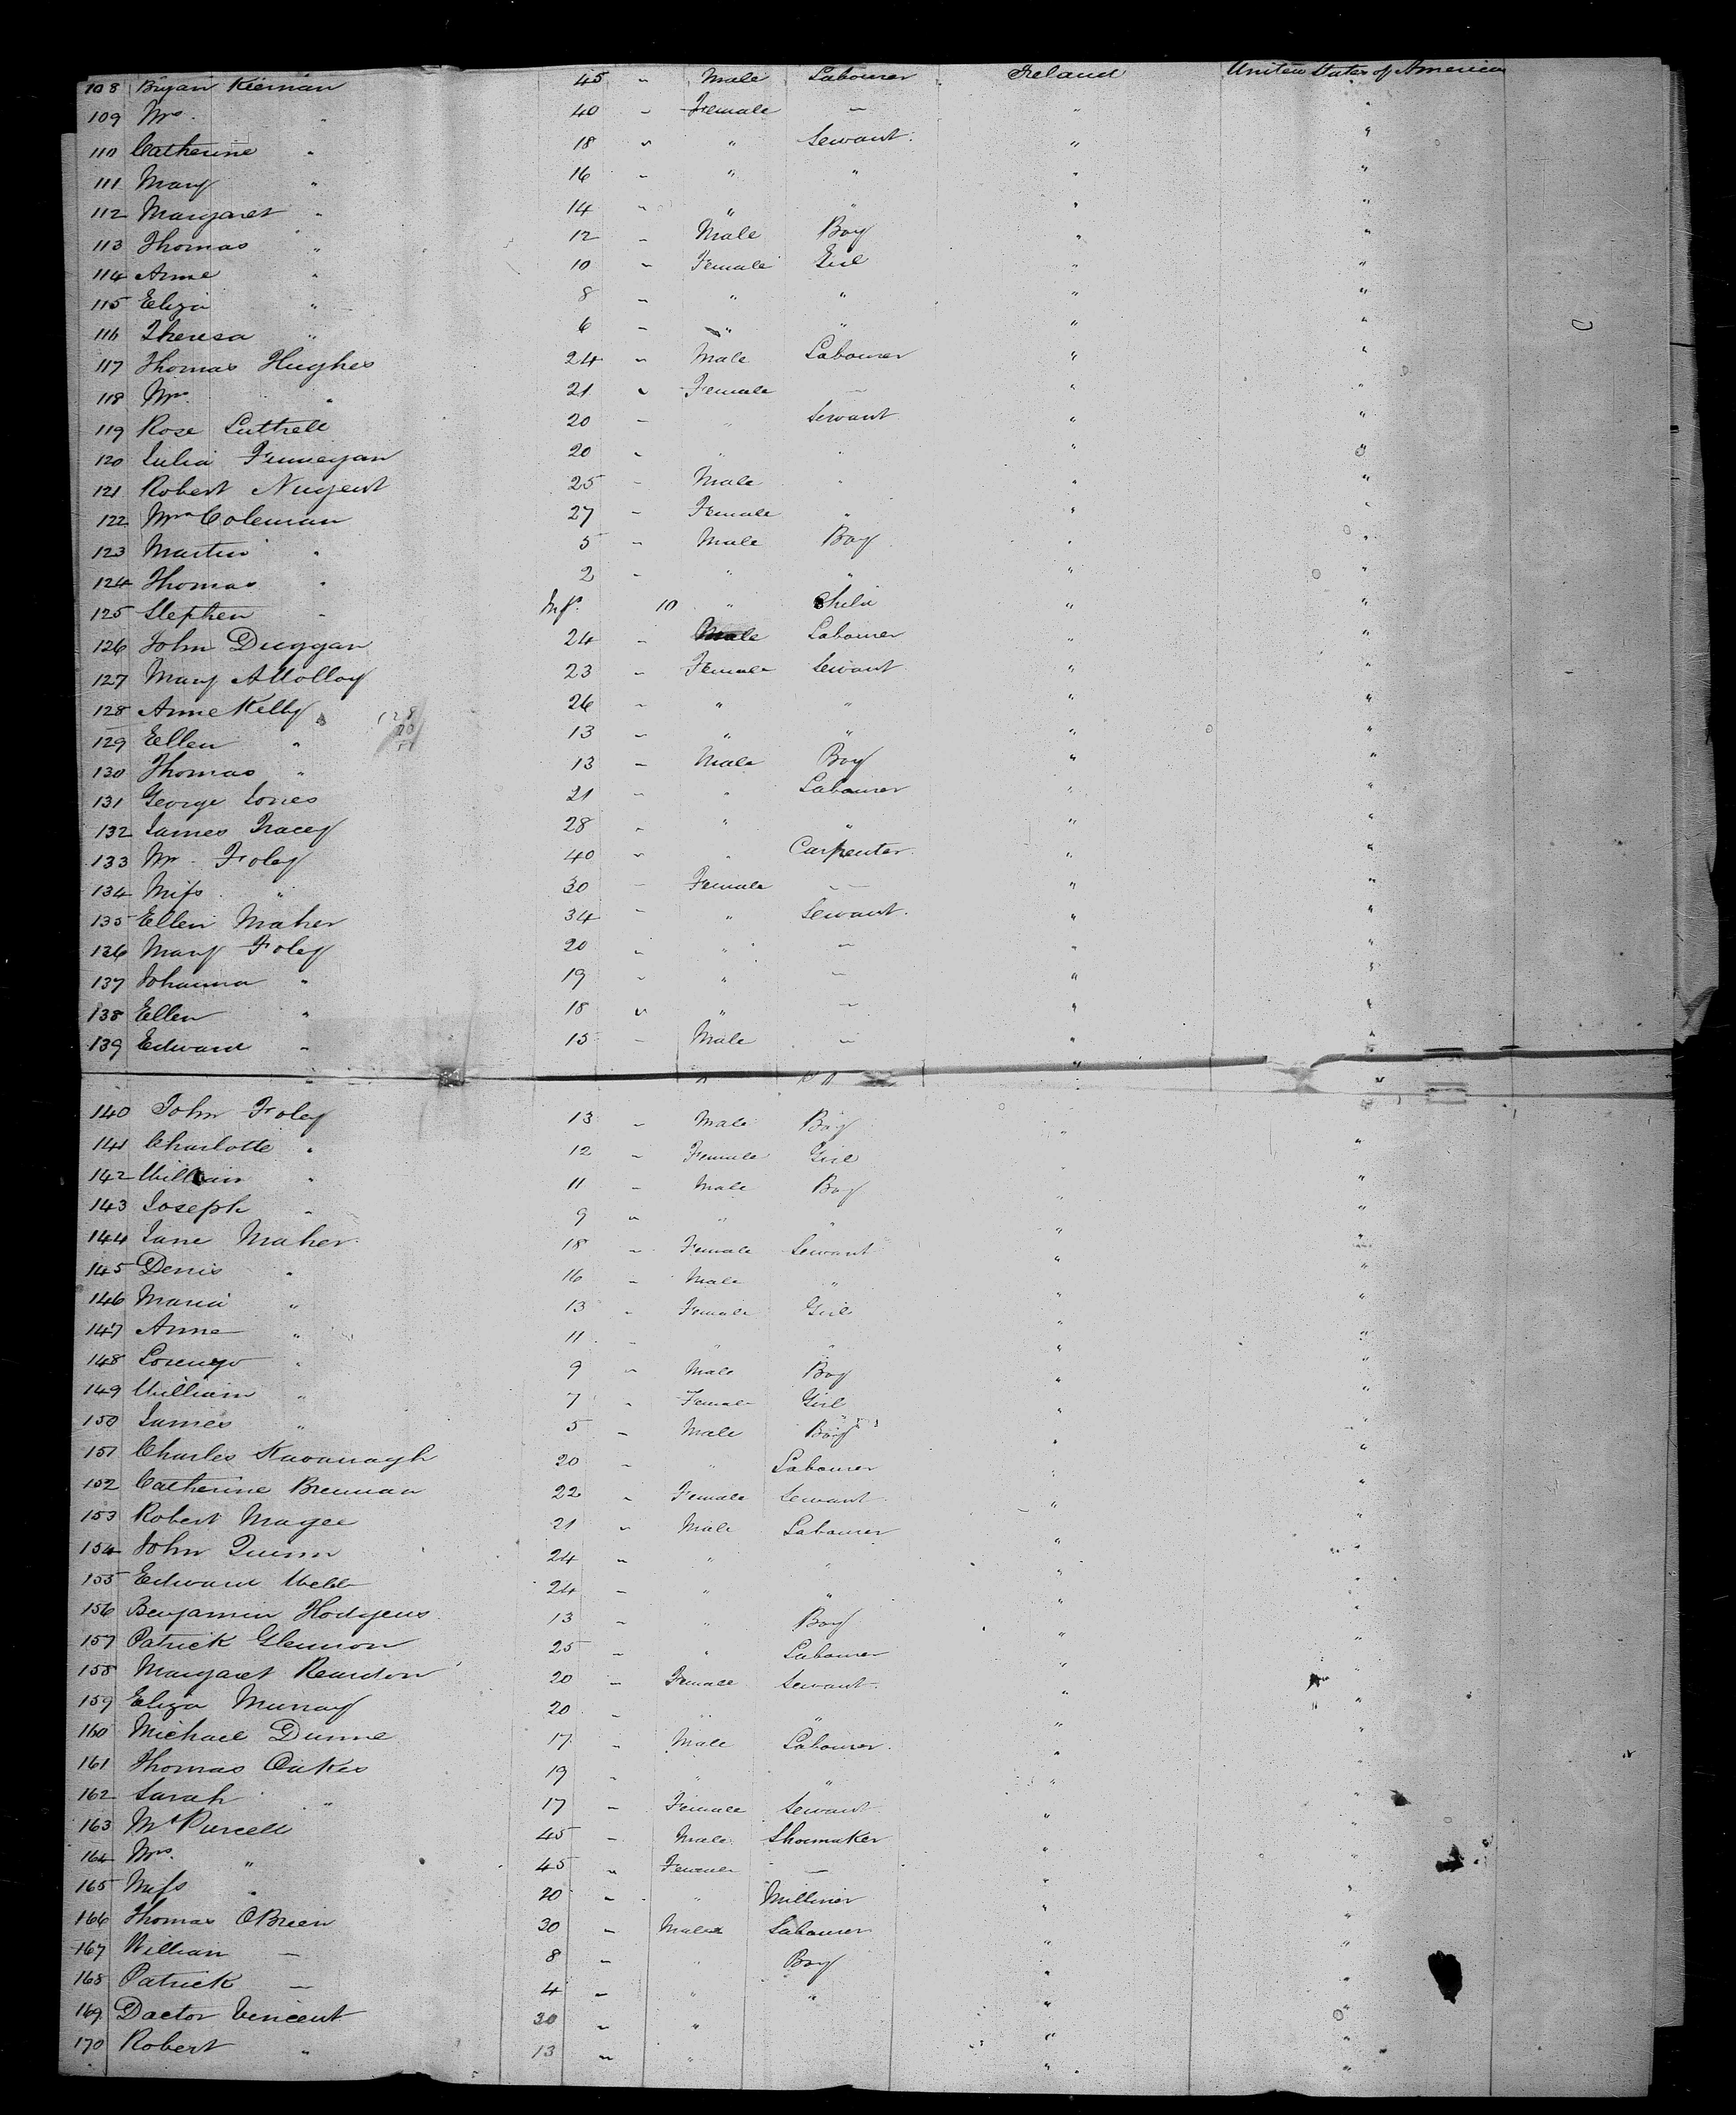 108 Bryan Kiernan 45 " Male Labourer Ireland United States of America
109 Mrs. " 40 " Female — " "
110 Catherine " 18 " " Servant. " "
111 Mary " 16 " " " " "
112 Margaret " 14 " " " " "
113 Thomas " 12 " Male Boy " "
114 Anne " 10 " Female Girl " "
115 Eliza " 8 " " " " "
116 Theresa " 6 " " " " "
117 Thomas Hughes 24 " Male Labourer " "
118 Mrs. " 21 " Female — " "
119 Rose Luttrell 20 " " Servant " "
120 Julia Finnegan 20 " " " " "
121 Robert Nugent 25 " Male " " "
122 Mrs Coleman 27 " Female " " "
123 Martin " 5 " Male Boy " "
124 Thomas " 2 " " " " "
125 Stephen " Inft. 10 " Child " "
126 John Duggan 24 " Male Labourer " "
127 Mary Molloy 23 " Female Servant " "
128 Anne Kelly 26 " " " " "
129 Ellen " 13 " " " " "
130 Thomas " 13 " Male Boy " "
131 George Jones 21 " " Labourer " "
132 James Tracey 28 " " " " "
133 Mr. Foley 40 " " Carpenter. " "
134 Miss " 30 " Female — " "
135 Ellen Maher 34 " " Servant. " "
136 Mary Foley 20 " " — " "
137 Johanna " 19 " " — " "
138 Ellen " 18 " " — " "
139 Edward " 15 " Male — " "
140 John Foley 13 " Male Boy " "
141 Charlotte " 12 " Female Girl " "
142 William " 11 " Male Boy " "
143 Joseph " 9 " " " " "
144 Jane Maher 18 " Female Servant " "
145 Denis " 16 " Male " " "
146 Maria " 13 " Female Girl " "
147 Anne " 11 " " " " "
148 Lorenzo " 9 " Male Boy " "
149 William " 7 " Female Girl " "
150 James " 5 " Male Boy " "
151 Charles Kavanagh 20 " " Labourer " "
152 Catherine Brennan 22 " Female Servant " "
153 Robert Magee 21 " Male Labourer " "
154 John Quinn 24 " " " " "
155 Edward Webb 24 " " " " "
156 Benjamin Hodgens 13 " " Boy " "
157 Patrick Glennon 25 " " Labourer " "
158 Margaret Reardon 20 " Female Servant. " "
159 Eliza Murray 20 " " " " "
160 Michael Dunne 17 " Male Labourer. " "
161 Thomas Oakes 19 " " " " "
162 Sarah " 17 " Female Servant " "
163 Mr Purcell 45 " Male Shoemaker " "
164 Mrs. " 45 " Female — " "
165 Miss " 20 " " Milliner " "
166 Thomas OBrien 30 " Male Labourer " "
167 William — 8 " " Boy " "
168 Patrick — 4 " " " " "
169 Doctor Vincent 30 " " " "
170 Robert " 13 " " " "